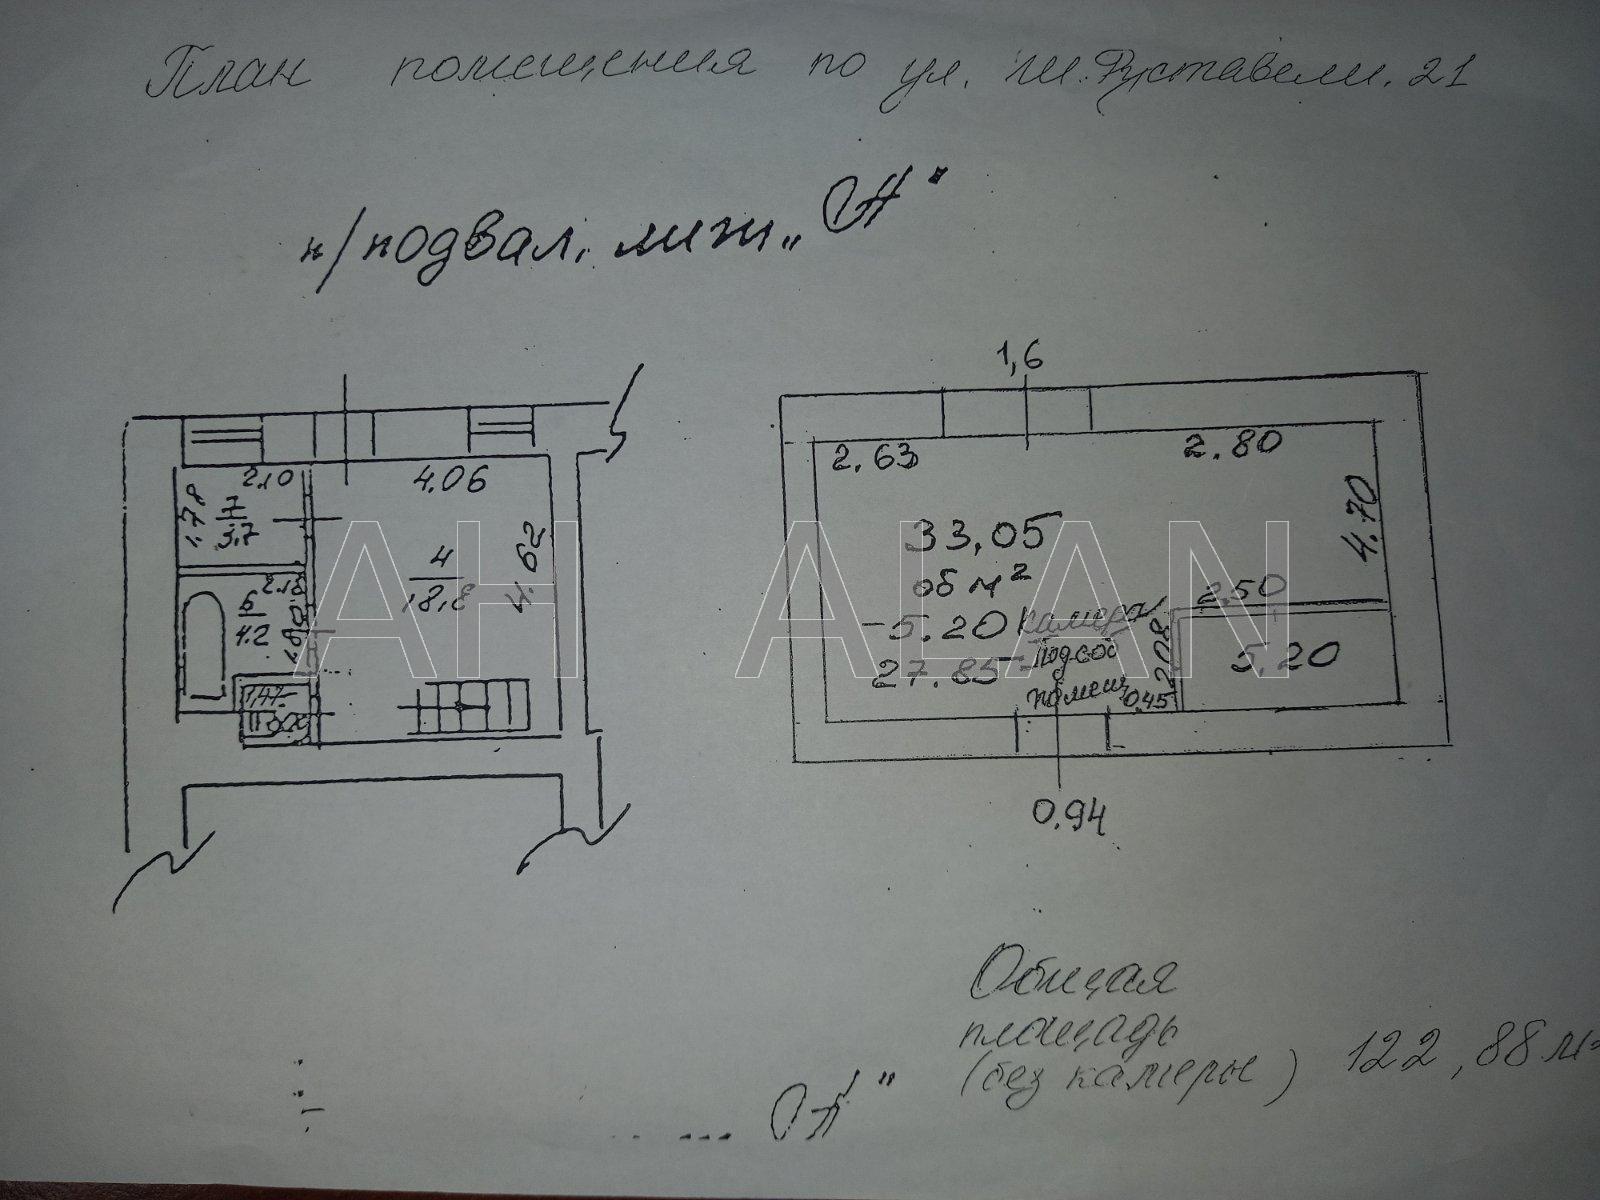 План помещения по ул. Ш. Руставели. 21
п/подвал, лит „А"
1,6
2.10
4.06
2.63
2.80
1.78
7
3.7
4.62
4
18,8
33,05
об м²
4.70
2.50
6
4.2
-5.20 камеры
27.85 - подсоб
помещ
2.08
0,45
5.20
0.94
Общая
площадь
(без камеры) 122,88 м²
"А"
AH ALAN